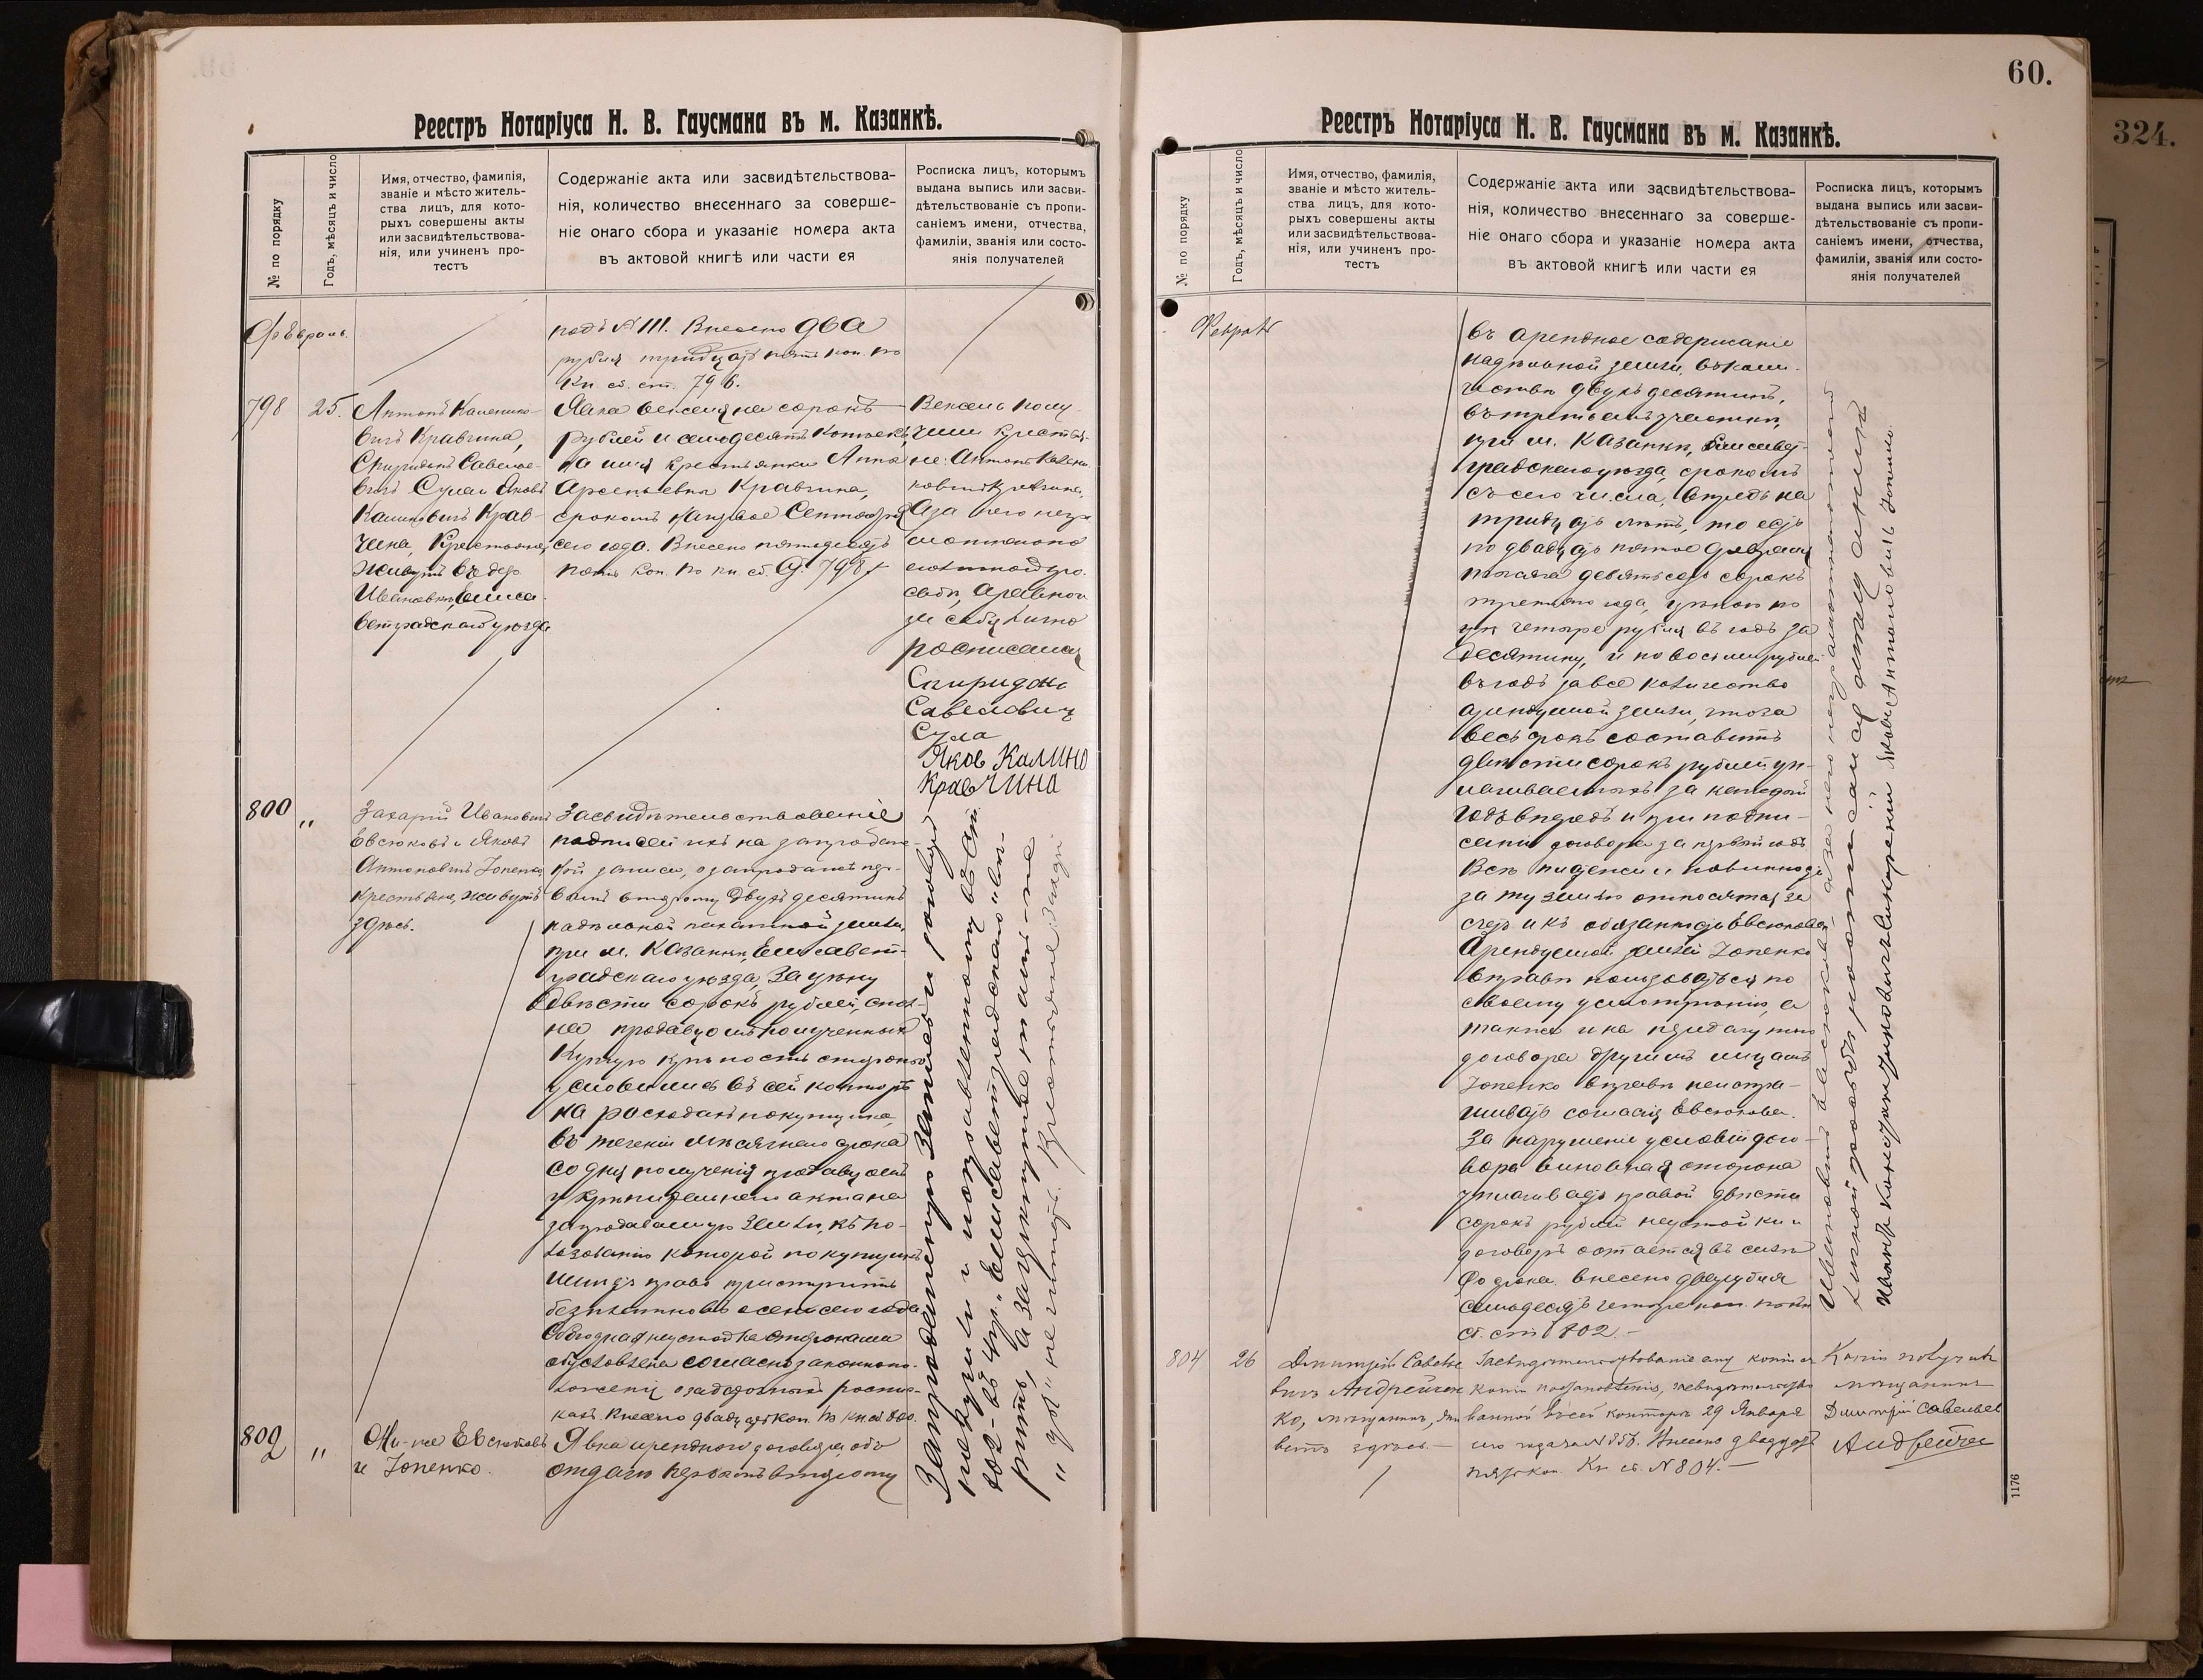 Реестръ Нотаріуса Н. В. Гаусмана въ м. Казанкѣ.
№ по порядку
Годъ, мѣсяцъ и число
Имя, отчество, фамилія,
званіе и мѣсто житель-
ства лицъ, для кото-
рыхъ совершены акты
или засвидѣтельствова-
нія, или учиненъ про-
тестъ
Содержаніе акта или засвидѣтельствова-
нія, количество внесеннаго за соверше-
ніе онаго сбора и указаніе номера акта
въ актовой книгѣ или части ея
Росписка лицъ, которымъ
выдана выпись или засви-
дѣтельствованіе съ пропи-
саніемъ имени, отчества,
фамиліи, званія или состо-
янія получателей
Февраль
подъ № 111. Внесено два
рубля тридцать пять коп. по
Кн. сб. ст. 796.
798
25.
Антонъ
вичъ Кравчина,
Спиридонъ Савелье-
вичъ Сула и Яковъ
Калиновичъ Крав-
чина, Крестьяне,
живутъ въ дер.
Ивановкѣ, Елиса-
ветградскаго уѣзда
Явка векселя на сорокъ
рублей и семьдесятъ копѣекъ,
на имя крестьянки Анны
Арсеньевны Кравчина,
срокомъ на первое Сентября
сего года. Внесено пятьдесятъ
пять коп. по кн. сб. № 798
Вексель полу-
чили крестья-
не: Антонъ
Кравчина,
а за него негра-
мотнаго
по его личной про-
сьбѣ, а равно и
за себя лично
росписался
Спиридонъ
Савелович
Сула
Яков Калино
Кравчина
800
"
Захарій Ивановичъ
Евсюковъ и Яковъ
Антоновичъ Зопенко
крестьяне, живутъ
здѣсь.
Засвидѣтельствованіе
подписей ихъ на запродаж-
ной записи, о запродажѣ пер-
вымъ второму двухъ десятинъ
надѣльной пахатной земли,
при м. Казанкѣ, Елисавет-
градскаго уѣзда, за цѣну
двѣсти сорокъ рублей, спол-
на продавцомъ полученныхъ
Купчую крѣпость стороны
условились въ сей конторѣ
на расходахъ покупщика,
въ теченіи мѣсячнаго срока
со дня полученія продавцомъ
укрѣпительнаго акта на
запродаваемую землю, къ по-
льзованію которой покупщикъ
имѣетъ право приступить
безплатно съ осени сего года
Обоюдная неустойка сторонами
обусловлена согласно законопо-
ложенія о задаточныхъ роспис-
кахъ. Внесено двадцать коп. по кн. сб. 800.
802
"
Тѣ-же Евсюковъ
и Зопенко.
Явка арендного договора, объ
отдачѣ первымъ второму
Реестръ Нотаріуса Н. В. Гаусмана въ м. Казанкѣ.
60.
324.
№ по порядку
Годъ, мѣсяцъ и число
Имя, отчество, фамилія,
званіе и мѣсто житель-
ства лицъ, для кото-
рыхъ совершены акты
или засвидѣтельствова-
нія, или учиненъ про-
тестъ
Содержаніе акта или засвидѣтельствова-
нія, количество внесеннаго за соверше-
ніе онаго сбора и указаніе номера акта
въ актовой книгѣ или части ея
Росписка лицъ, которымъ
выдана выпись или засви-
дѣтельствованіе съ пропи-
саніемъ имени, отчества,
фамиліи, званія или состо-
янія получателей
Февраль
въ арендное содержаніе
надѣльной земли, въ коли-
чествѣ двухъ десятинъ,
въ третьемъ участкѣ,
при м. Казанкѣ, Елисавет-
градскаго уѣзда, срокомъ
съ сего числа, впредь на
тридцать лѣтъ, то есть
по двадцать пятое Февраля
тысяча девятьсотъ сорокъ
третьяго года, цѣною по
четыре рубля въ годъ за
десятину, и по восьми рублей
въ годъ за все количество
арендуемой земли, что за
весь срокъ составитъ
двѣсти сорокъ рублей уп-
лачиваемыхъ за каждый
годъ впредь и при подпи-
саніи договора за первый годъ.
Всѣ платежи и повинности
за ту землю относятся за
счетъ и къ обязанности Евсюкова.
Арендуемой землей Зопенко
вправѣ пользоваться по
своему усмотрѣнію, а
также и на передачу того
договора другимъ лицамъ
Зопенко вправѣ не испра-
шивать согласія Евсюкова.
За нарушеніе условій дого-
вора виновная сторона
уплачиваетъ правой двѣсти
сорокъ рублей неустойки и
договоръ остается въ силѣ
до срока. Внесено два рубля
семьдесятъ четыре коп. по кн.
сб. ст. 802.
804
26
Дмитрій Савелье-
вичъ Андрейчен-
ко, мѣщанинъ, жи-
ветъ здѣсь.
Засвидѣтельствованіе ему копіи съ
копіи постановленія, засвидѣтельство-
ванной въ сей конторѣ 29 Января
сего года за № 358. Внесено двадцать
пять коп. Кн. сб. № 804.
Копію получилъ
мѣщанинъ
Дмитрій Савельев
Андрейчен
1176